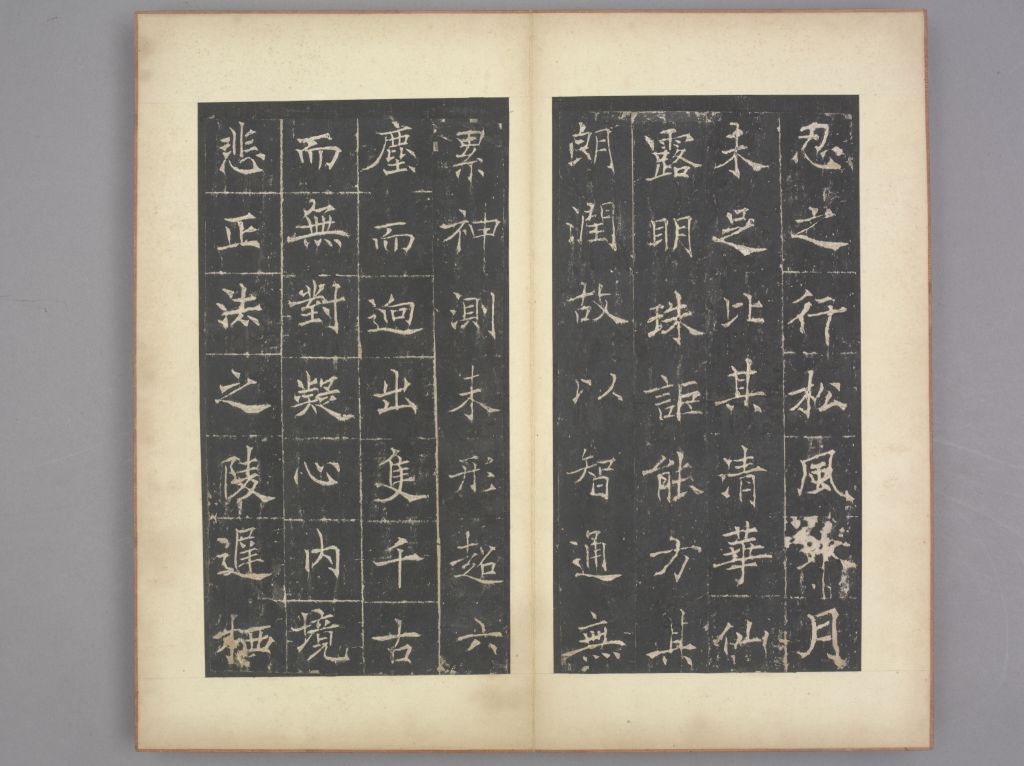 忍之行松風水月
未足比其清華仙
露明珠詎能方其
朗潤故以智通無
累神測未形超六
塵而逈出隻千古
而無對凝心內境
悲正法之陵遲栖